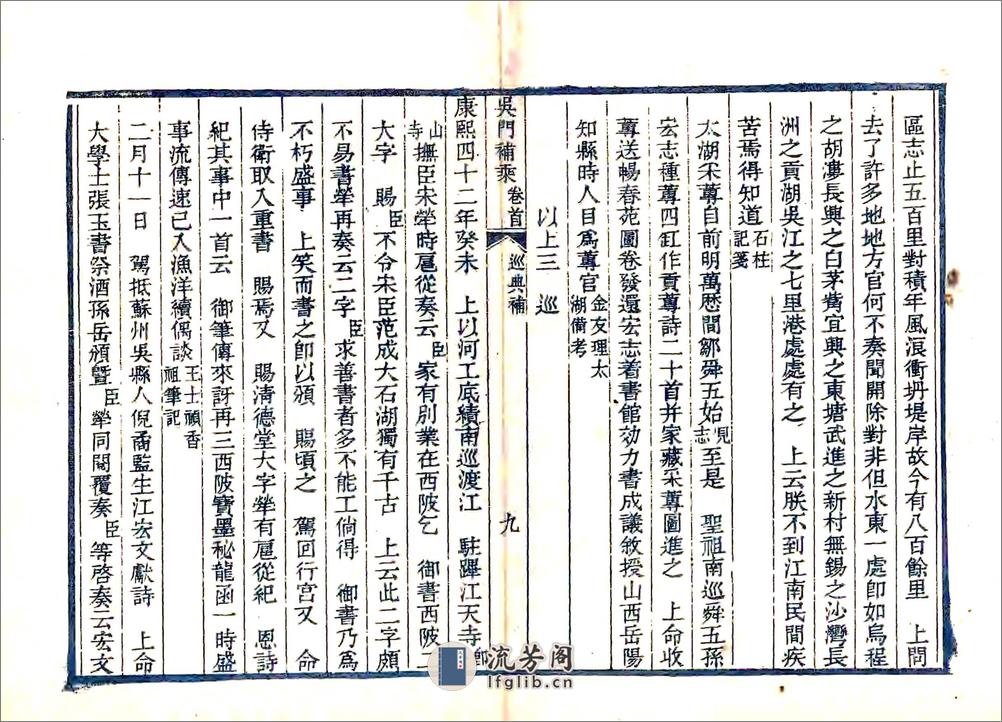 區志止五百里對積年風浪衝坍堤岸故今有八百餘里　上問
去了許多地地方官何不奏聞開除對非但水東一處卽如烏程
之胡漊長興之白茅嘴宜興之東塘武進之新村無錫之沙灣長
洲之貢湖吳江之七里港處處有之　上云朕不到江南民間疾
苦焉得知道石柱記箋
太湖采蓴自前明萬歷間鄒舜五始見志至是　聖祖南巡舜五孫
宏志種蓴四缸作貢蓴詩二十首并家藏采蓴圖進之　上命收
蓴送暢春苑圖卷發還宏志着書館効力書成議敘授山西岳陽
知縣時人目爲蓴官金友理太湖備考
以上三　巡
吳門補乘　卷首　巡典補　九
康熙四十二年癸未　上以河工底績南巡渡江　駐蹕江天寺卽
山寺撫臣宋犖時扈從奏云臣家有別業在西陂乞　御書西陂二
大字　賜臣不令宋臣范成大石湖獨有千古　上云此二字頗
不易書犖再奏云二字臣求善書者多不能工倘得　御書乃爲
不朽盛事　上笑而書之卽以頒　賜頃之　駕回行宫又　命
侍衛取入重書　賜焉又　賜淸德堂大字犖有扈從紀　恩詩
紀其事中一首云　御筆傳來訝再三西陂寶墨秘龍函一時盛
事流傳速已入漁洋續偶談王士禎香祖筆記
二月十一日　駕抵蘇州吳縣人倪矞監生江宏文獻詩　上命
大學士張玉書祭酒孫岳頒曁臣犖同閱覆奏臣等啓奏云宏文
流芳阁
lfglib.cn